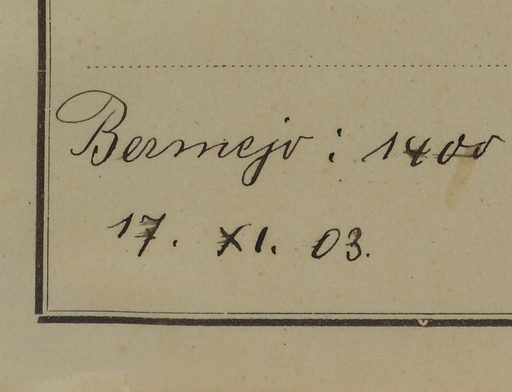 Bermejo: 1400
17. XI. 03.